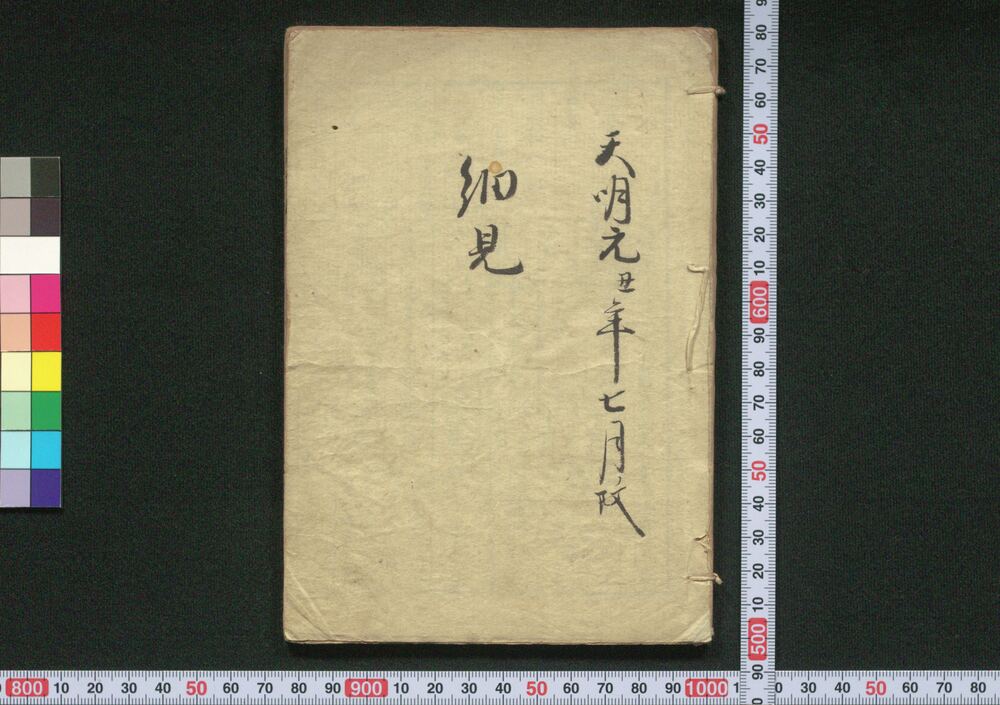 天明元丑年七月改
細見
90
80
70
60
50
40
30
20
10
600
90
80
70
60
50
40
30
20
10
500
90
800 10 20 30 40 50 60 70 80 90 900 10 20 30 40 50 60 70 80 90 1000 1 0 30 40 50 60 70 80